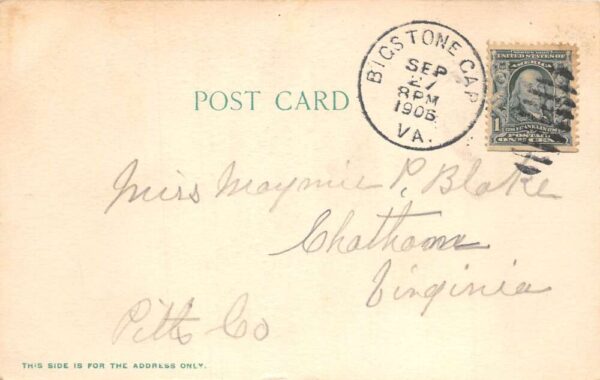 BIGSTONE GAP
SEP
27
8PM
1906
VA.
UNITED STATES OF
AMERICA
1
FRANKLIN
POSTAGE
ONE CENT
POST CARD
Miss Maymie P. Blake
Chatham
Virginia
Pitts Co
THIS SIDE IS FOR THE ADDRESS ONLY.